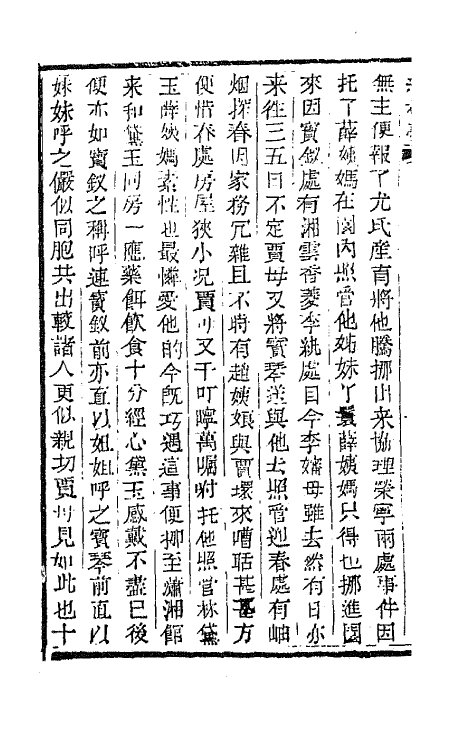 無主便報了尤氏産育將他騰挪出来協理榮寧兩處事件因
托了薛姨媽在園内照管他姊妹丫鬟薛姨媽只得也挪進園
來因寳釵處有湘雲香菱李紈處目今李嬸母雖去然有日亦
来徃三五日不定賈母又將寳琴送與他去照管迎春處有岫
烟探春因家務冗雜且不時有趙姨娘與賈環來嘈聒甚不方
便惜春處房屋狹小况賈母又千叮嚀萬囑咐托他照管林黛
玉薛姨媽素性也最憐愛他的今既巧遇這事便挪至瀟湘館
来和黛玉同房一應藥餌飲食十分經心黛玉感戴不盡已後
便亦如寳釵之稱呼連寳釵前亦直以姐姐呼之寳琴前直以
妹妹呼之儼似同胞共出較諸人更似親切賈母見如此也十